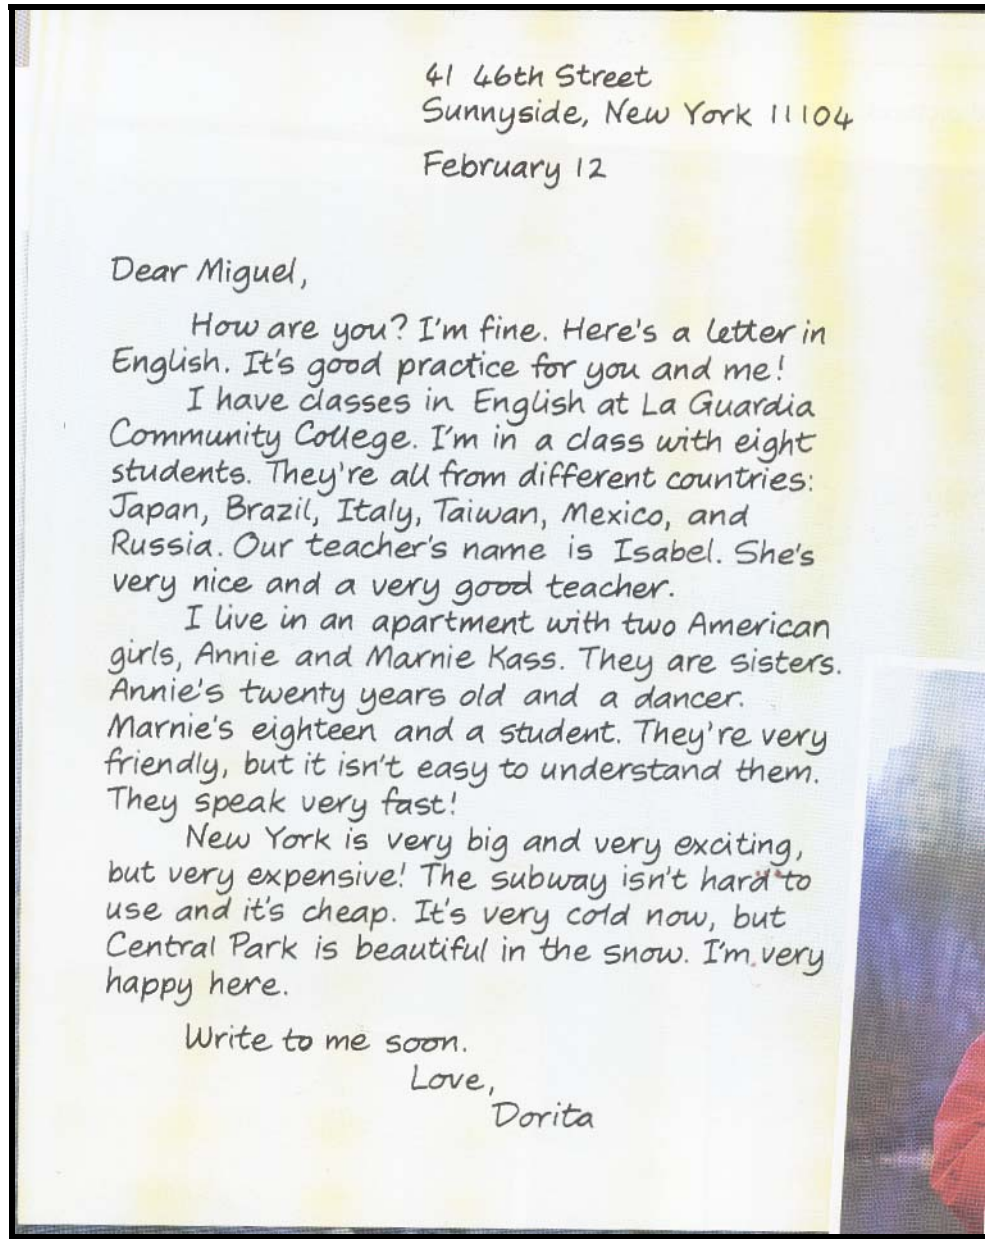 41 46th Street
Sunnyside, New York 11104
February 12
Dear Miguel,
How are you? I'm fine. Here's a letter in
English. It's good practice for you and me!
I have classes in English at La Guardia
Community College. I'm in a class with eight
students. They're all from different countries:
Japan, Brazil, Italy, Taiwan, Mexico, and
Russia. Our teacher's name is Isabel. She's
very nice and a very good teacher.
I live in an apartment with two American
girls, Annie and Marnie Kass. They are sisters.
Annie's twenty years old and a dancer.
Marnie's eighteen and a student. They're very
friendly, but it isn't easy to understand them.
They speak very fast!
New York is very big and very exciting,
but very expensive! The subway isn't hard to
use and it's cheap. It's very cold now, but
Central Park is beautiful in the snow. I'm very
happy here.
Write to me soon.
Love,
Dorita